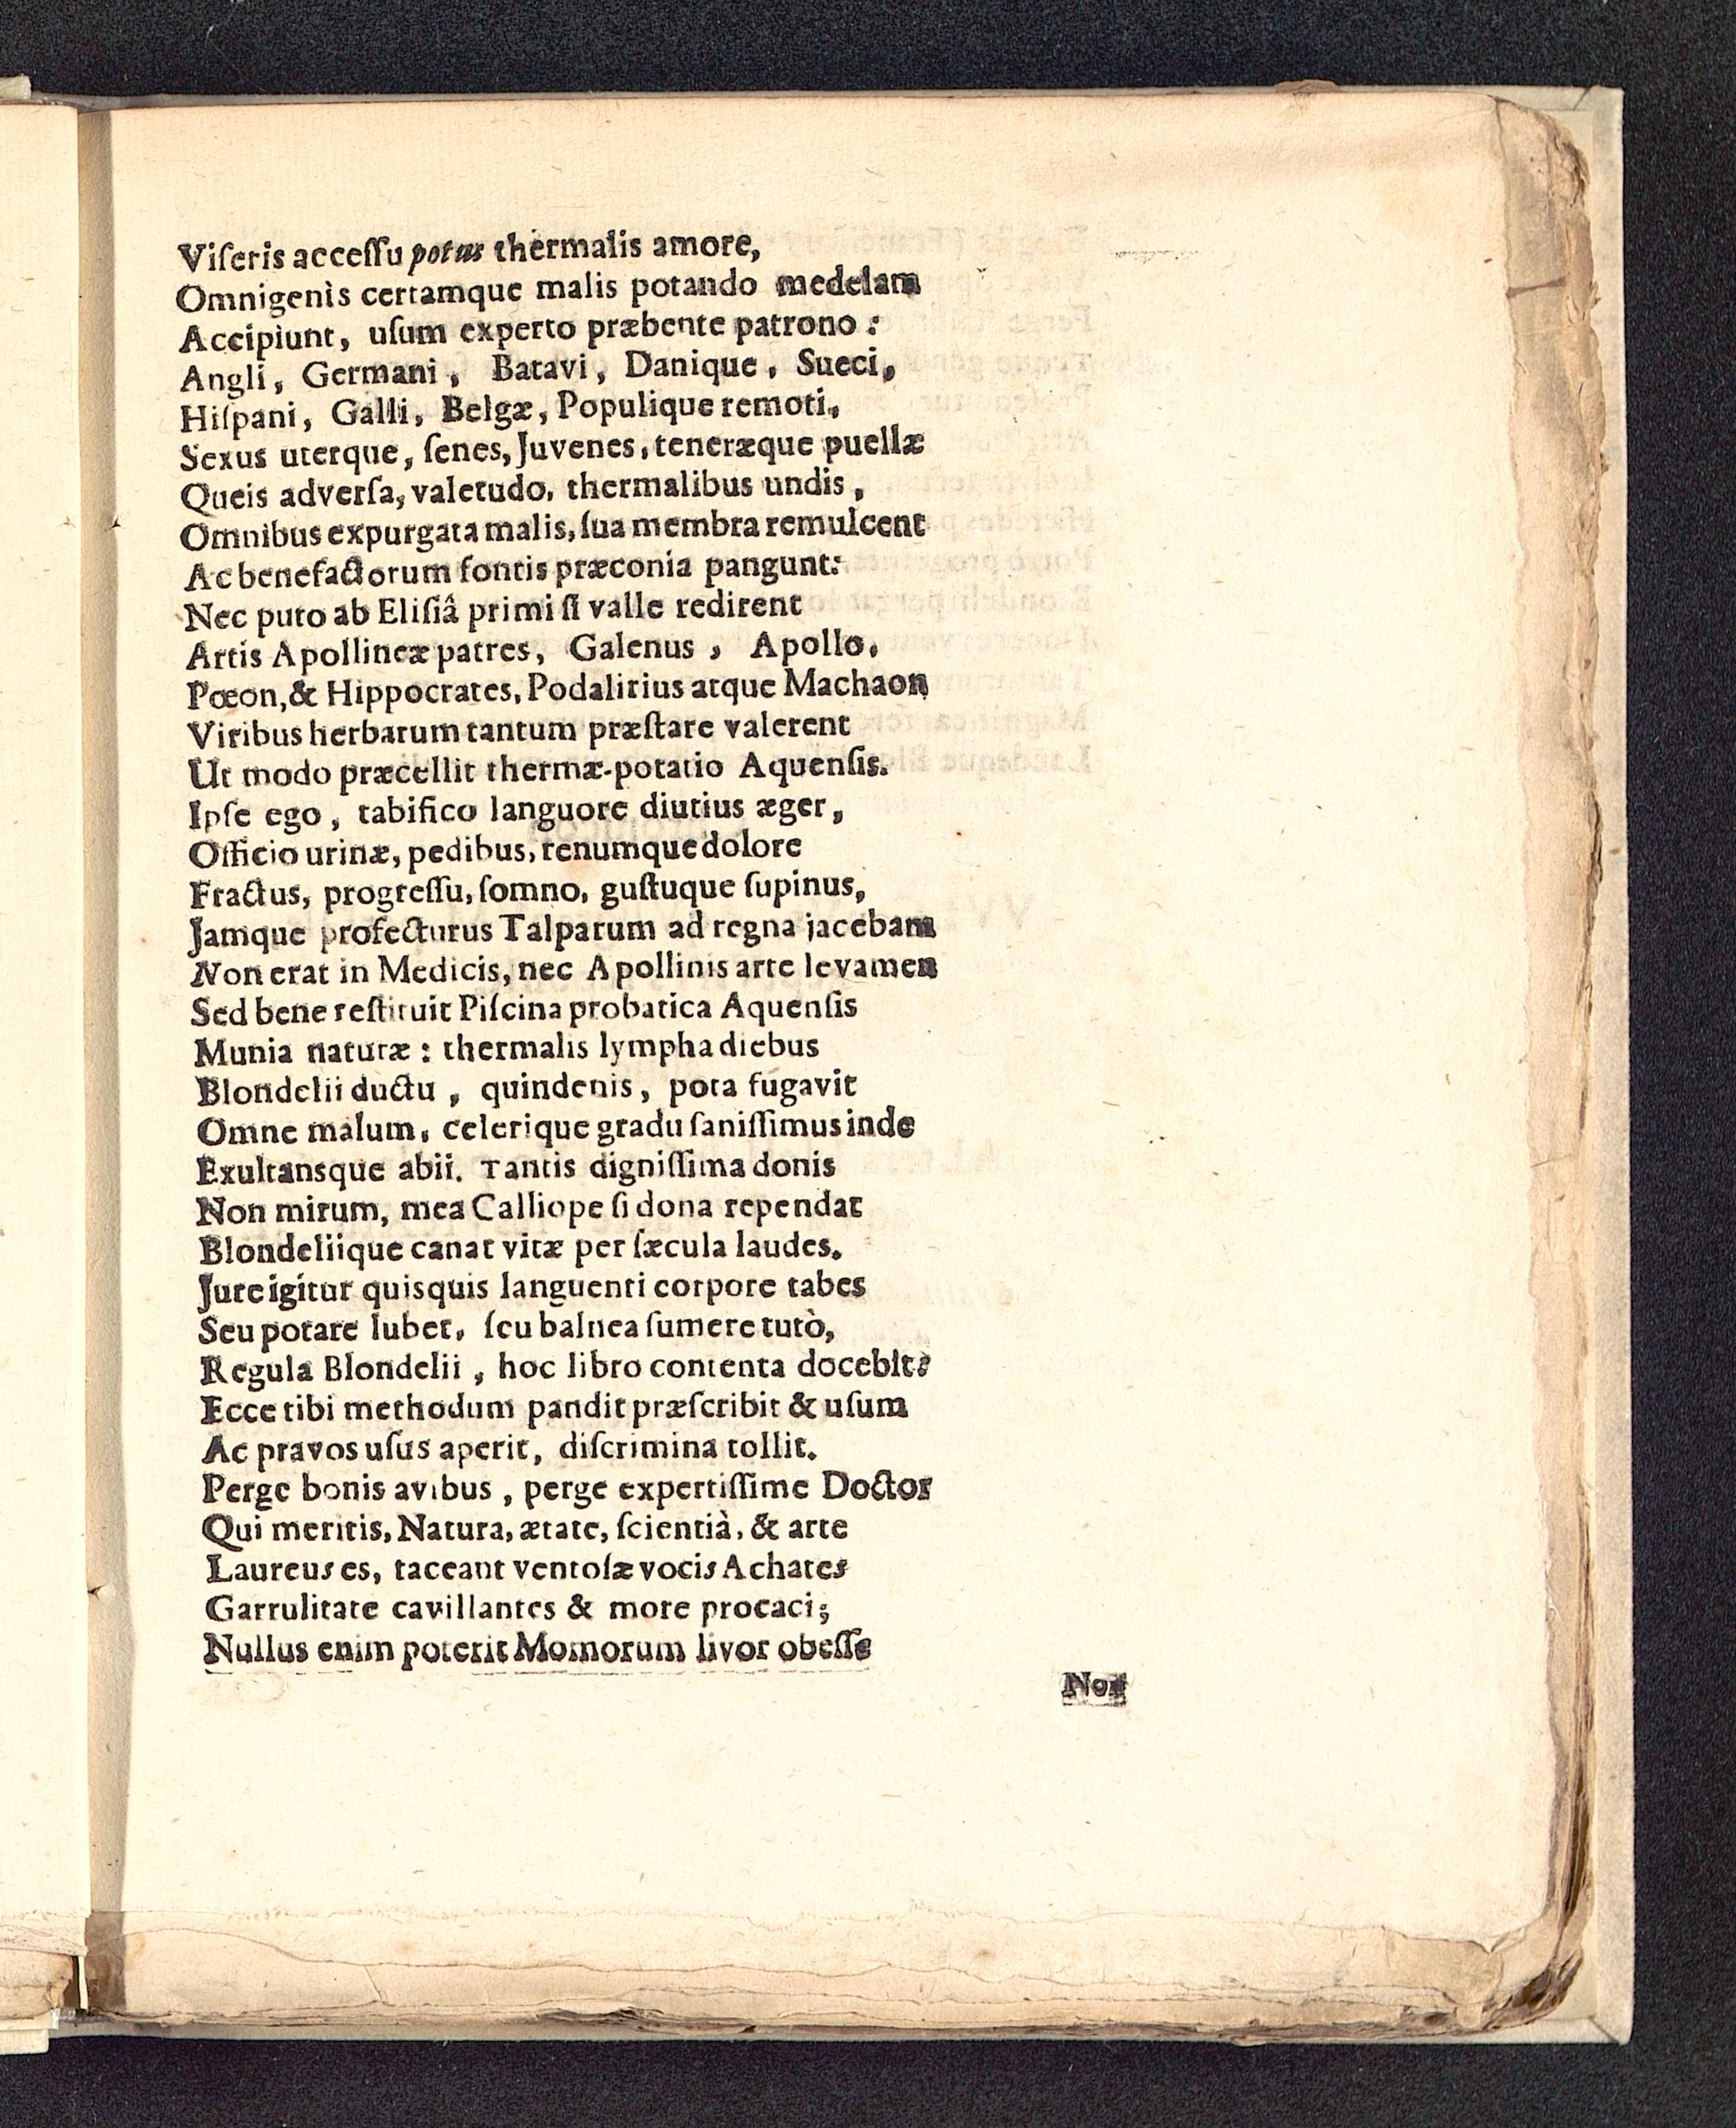 Viſeris acceſſu potus thermalis amore,
Omnigenìs certamque malis potando medelam
Accipiunt, uſum experto præbente patrono :
Angli, Germani, Batavi, Danique, Sueci,
Hiſpani, Galli, Belgæ, Populique remoti,
Sexus uterque, ſenes, Juvenes, teneræque puellæ
Queis adverſa, valetudo, thermalibus undis,
Omnibus expurgata malis, ſua membra remulcent
Ac benefactorum fontis præconia pangunt:
Nec puto ab Eliſiâ primi ſi valle redirent
Artis Apollineæ patres, Galenus, Apollo,
Pœon, & Hippocrates, Podalirius atque Machaon
Viribus herbarum tantum præſtare valerent
Ut modo præcellit thermæ-potatio Aquenſis.
Ipſe ego, tabifico languore diutius æger,
Officio urinæ, pedibus, renumque dolore
Fractus, progreſſu, ſomno, guſtuque ſupinus,
Jamque profecturus Talparum ad regna jacebam
Non erat in Medicis, nec Apollinis arte levamen
Sed bene reſtituit Piſcina probatica Aquenſis
Munia naturæ : thermalis lympha diebus
Blondelii ductu, quindenis, pota fugavit
Omne malum, celerique gradu ſaniſſimus inde
Exultansque abii. Tantis digniſſima donis
Non mirum, mea Calliope ſi dona rependat
Blondeliique canat vitæ per ſæcula laudes.
Jure igitur quisquis languenti corpore tabes
Seu potare lubet, ſeu balnea ſumere tutò,
Regula Blondelii, hoc libro contenta docebit:
Ecce tibi methodum pandit præſcribit & uſum
Ac pravos uſus aperit, diſcrimina tollit.
Perge bonis avibus, perge expertiſſime Doctor
Qui meritis, Natura, ætate, ſcientià, & arte
Laureus es, taceant ventoſæ vocis Achates
Garrulitate cavillantes & more procaci;
Nullus enim poterit Momorum livor obeſſe
Nos